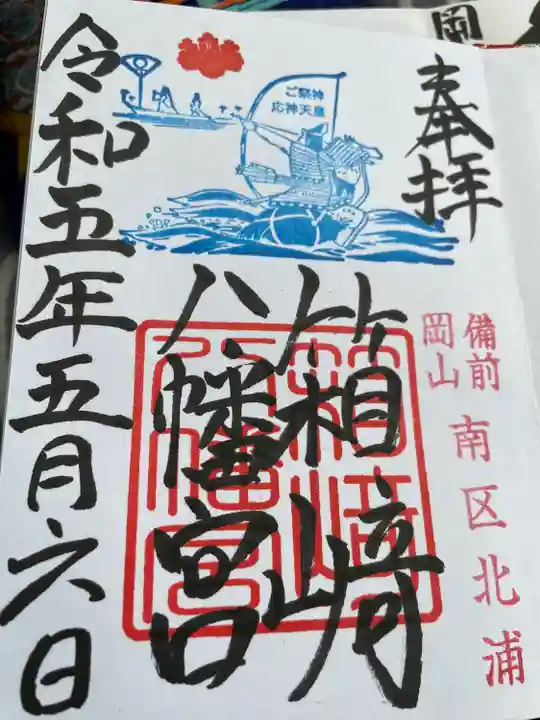 岡
奉拝
備前
岡山
南区北浦
ご祭神
応神天皇
箱崎
八幡宮
令和五年五月六日